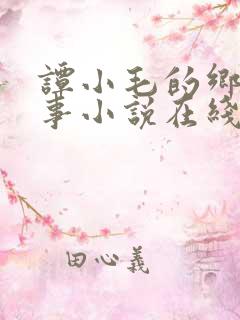 譚小毛的鄉
事小説在綫
田心義